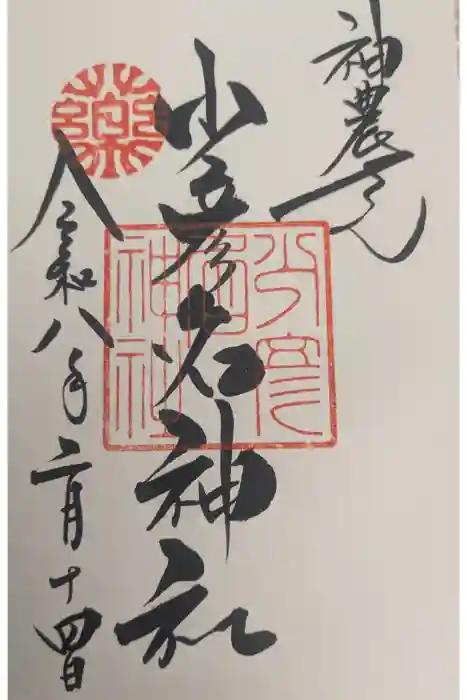 神農さん
少彦名神社
令和八年二月十四日
藥
少彦名神社